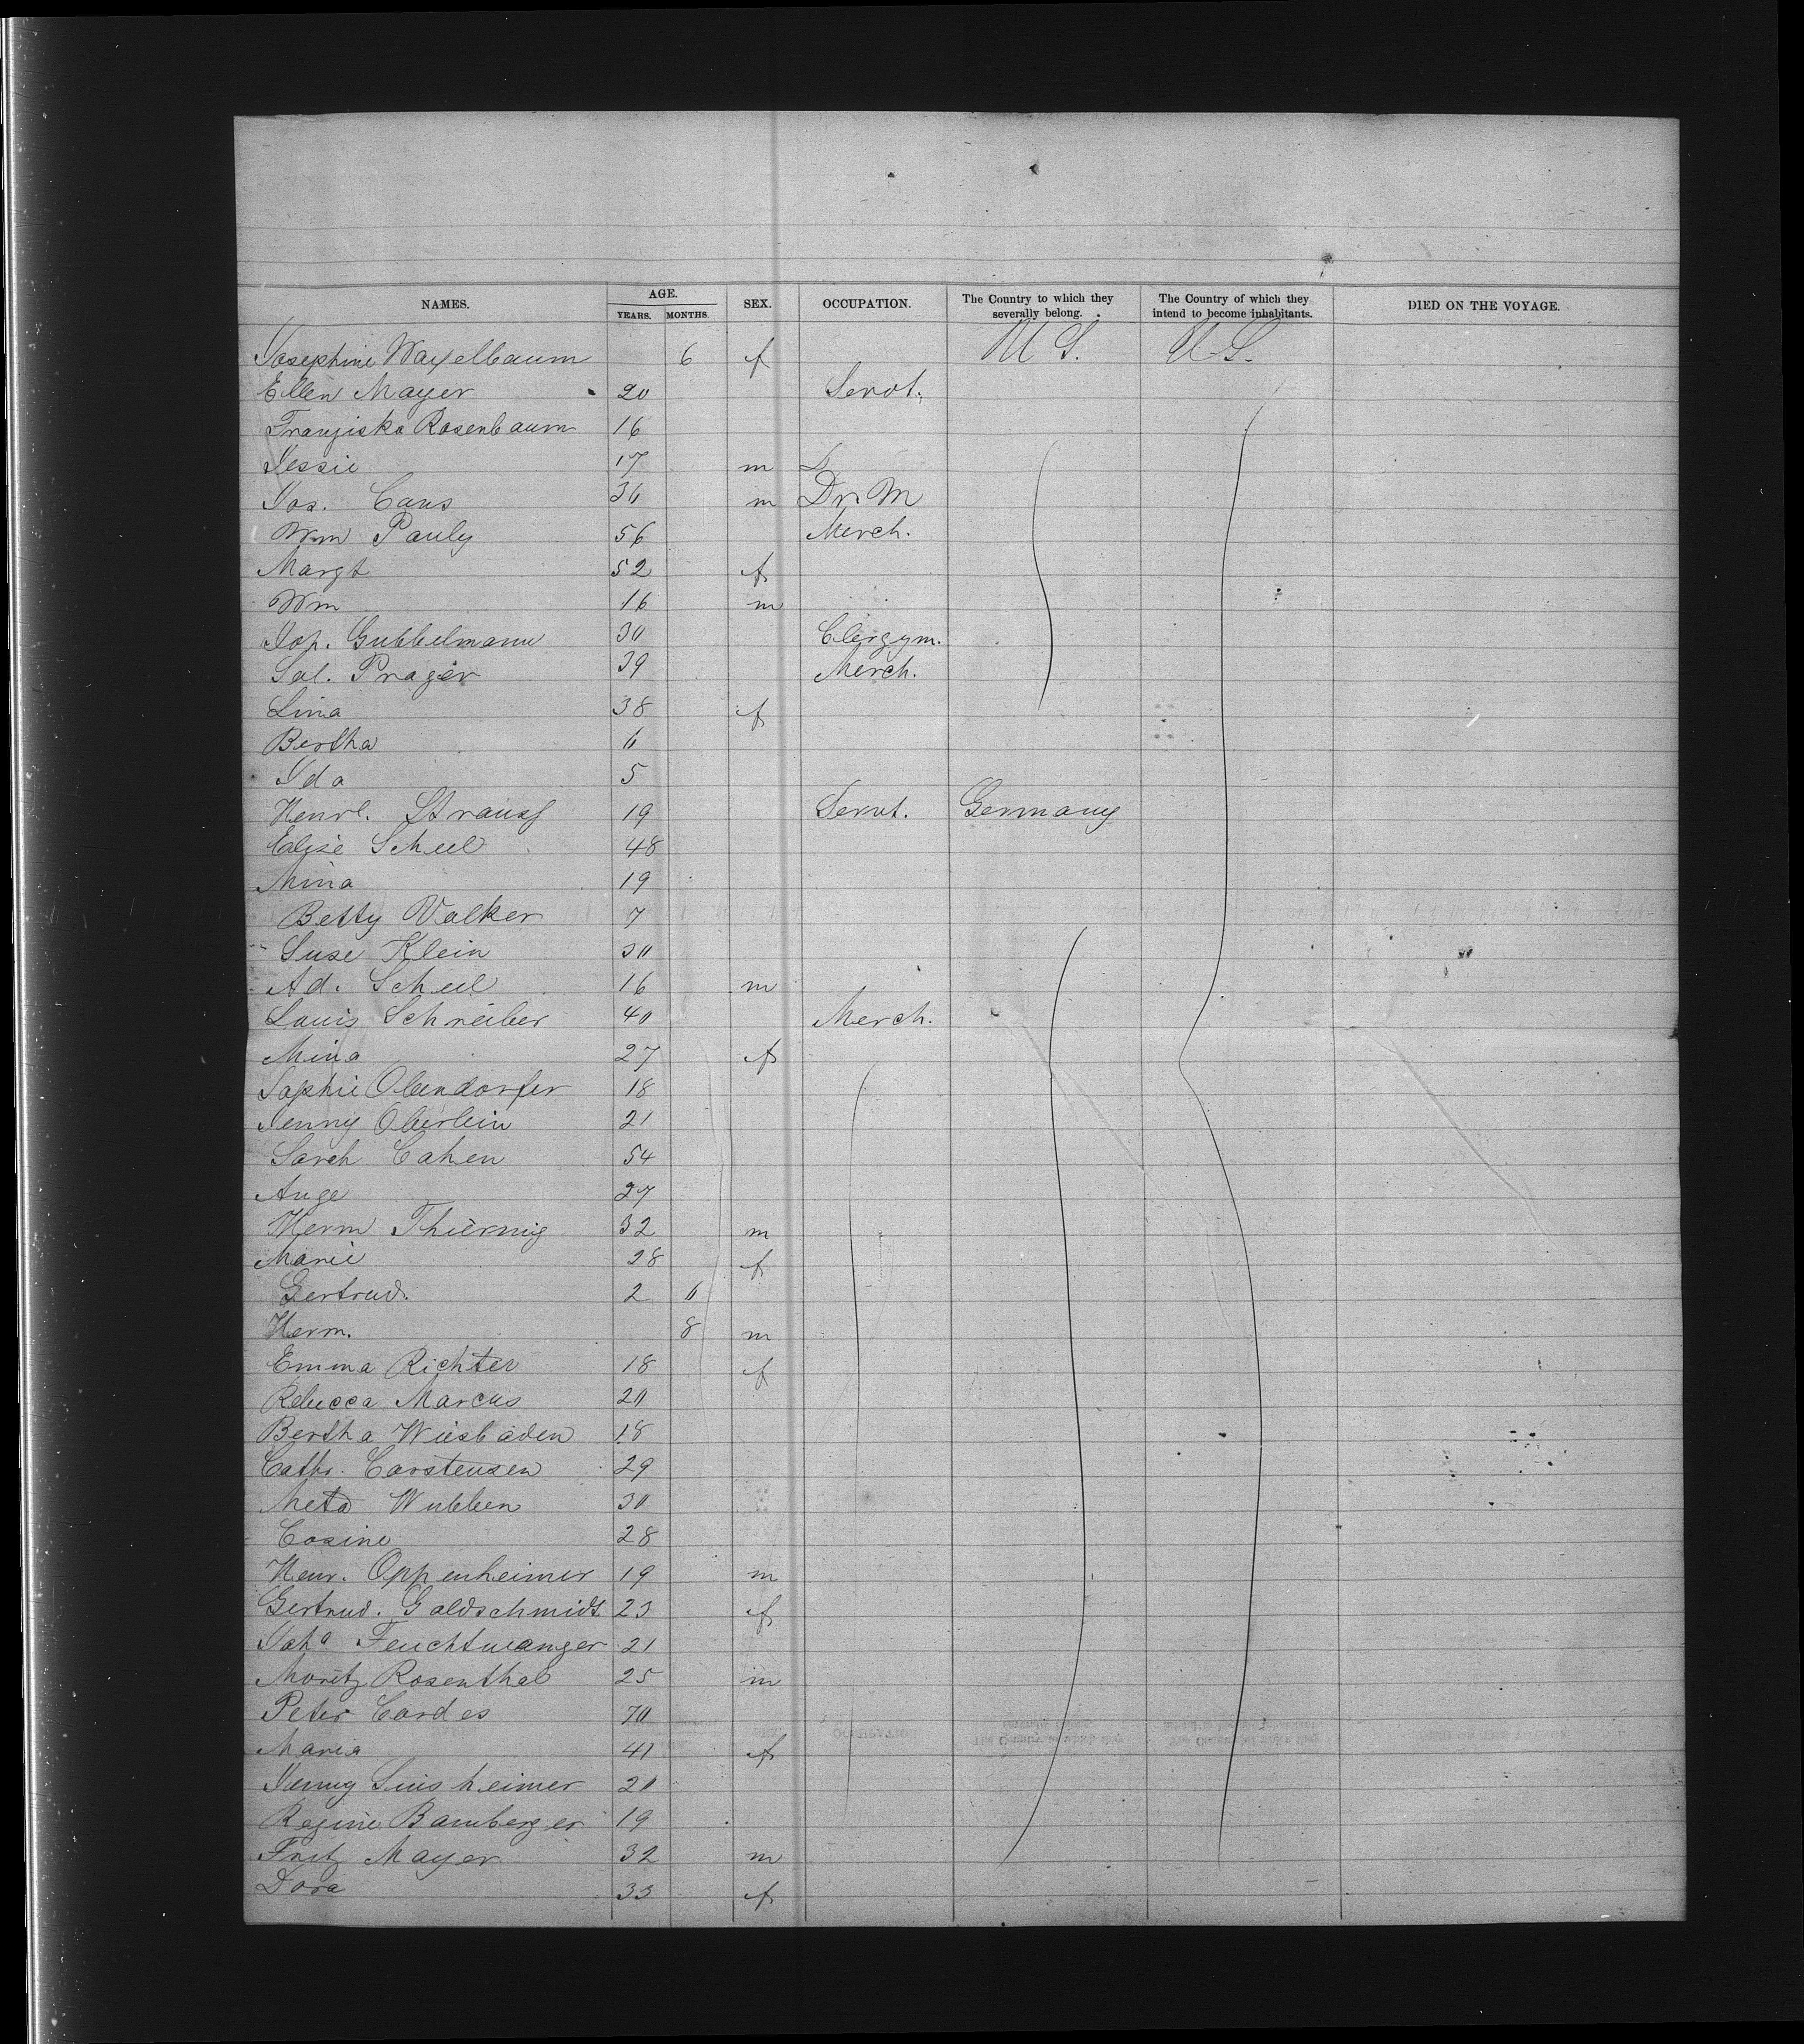 NAMES. AGE. SEX. OCCUPATION. The Country to which they severally belong. The Country of which they intend to become inhabitants. DIED ON THE VOYAGE.
YEARS. MONTHS.
Josephine Wayelbaum 6 f U S. U S.
Ellen Mayer 20 Servt.
Franziska Rosenbaum 16
Jessie 17 m
Jos. Caus 30 m Dr. M
Wm Pauly 56 Merch.
Margt 52 f
Wm 16 m
Jos. Gubbelmann 30 Clergym.
Sal. Prager 39 Merch.
Lina 38 f
Bertha 6
Ida 5
Henrl. Strauss 19 Servt. Germany
Elise Scheel 48
Mina 19
Betty Valker 7
Suse Klein 30
Ad. Scheel 16 m
Louis Schreiber 40 Merch.
Mina 27 f
Sophie Obendorfer 18
Jenny Oberlein 21
Sareh Cahen 54
Auge 27
Herm Thiermig 32 m
Marie 28 f
Gertrud. 2 6
Herm. 8 m
Emma Richter 18 f
Rebecca Marcus 20
Bertha Wiesbaden 18
Cathr. Carstensen 29
Meta Wubben 30
Cosine 28
Henr. Oppenheimer 19 m
Gertrud. Goldschmidt 23 f
Joha Feuchtwanger 21
Moritz Rosenthal 25 m
Peter Cordes 70
Maria 41 f
Jenny Sinsheimer 20
Regine Bamberger 19
Fritz Mayer 32 m
Dora 33 f